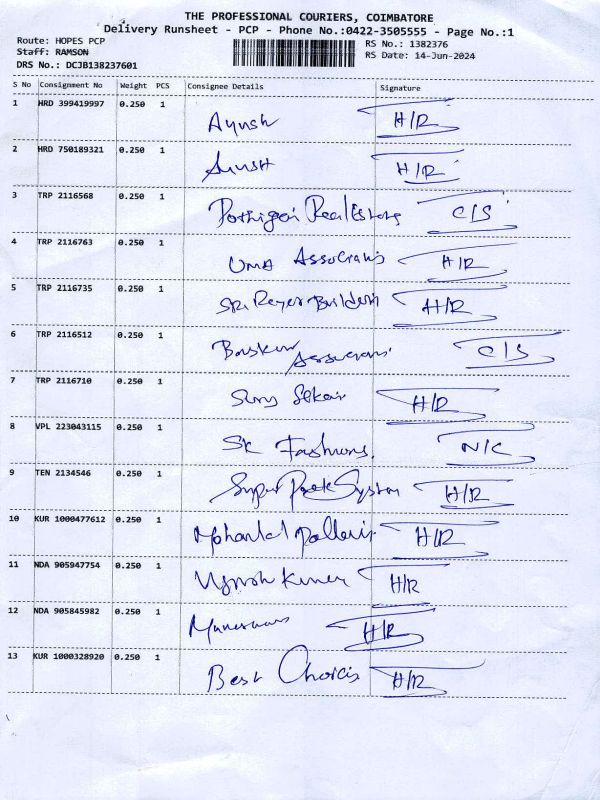 THE PROFESSIONAL COURIERS, COIMBATORE
Delivery Runsheet - PCP - Phone No.:0422-3505555 - Page No.:1
Route: HOPES PCP RS No.: 1382376
Staff: RAMSON RS Date: 14-Jun-2024
DRS No.: DCJB138237601
S No Consignment No Weight PCS Consignee Details Signature
1 HRD 399419997 0.250 1 Ayush H/R
2 HRD 750189321 0.250 1 H/R
3 TRP 2116568 0.250 1 C/S
4 TRP 2116763 0.250 1 UMA H/R
5 TRP 2116735 0.250 1 H/R
6 TRP 2116512 0.250 1 C/S
7 TRP 2116710 0.250 1 H/R
8 VPL 223043115 0.250 1 SK Fashions. N/C
9 TEN 2134546 0.250 1 System H/R
10 KUR 1000477612 0.250 1 H/R
11 NDA 905947754 0.250 1 H/R
12 NDA 905845982 0.250 1 H/R
13 KUR 1000328920 0.250 1 Best H/R